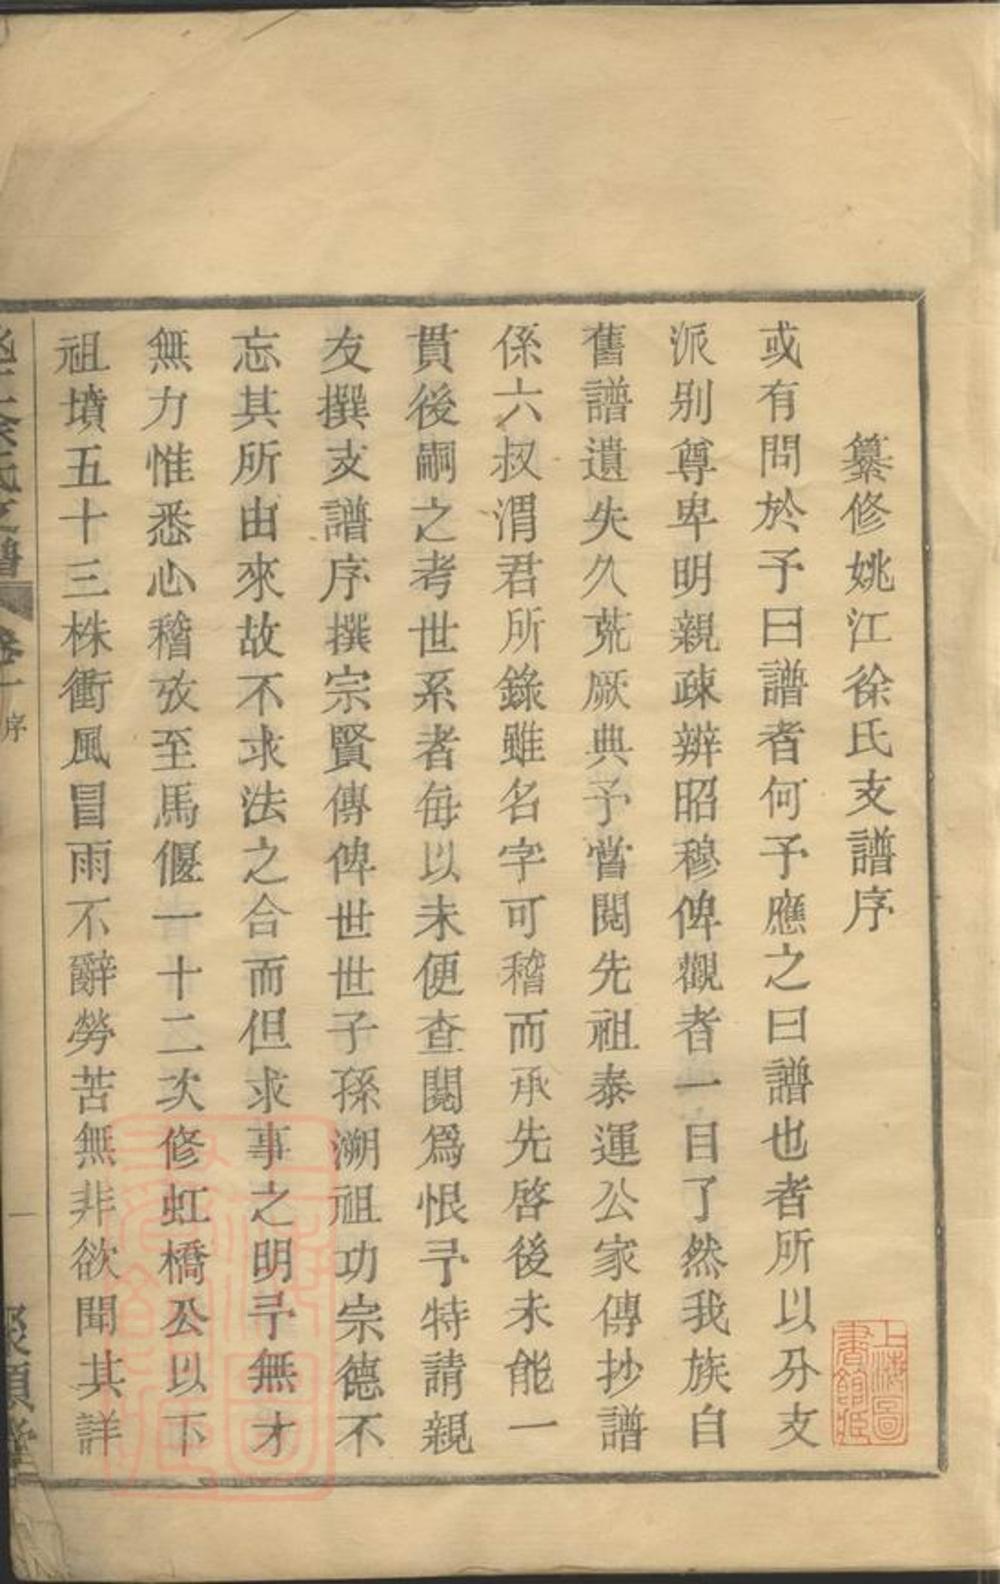 纂修姚江徐氏支譜序
或有問於予曰譜者何予應之曰譜也者所以分支
派别尊卑明親疎辨昭穆俾觀者一目了然我族自
舊譜遺失久荒厥典予嘗閱先祖泰運公家傳抄譜
係六叔渭君所錄雖名字可稽而承先啓後未能一
貫後嗣之考世系者每以未便查閱爲恨予特請親
友撰支譜序撰宗賢傳俾世世子孫溯祖功宗德不
忘其所由來故不求法之合而但求事之明予無才
無力惟悉心稽攷至馬偃一十二次修虹橋公以下
祖墳五十三株衝風冒雨不辭勞苦無非欲聞其詳
徐氏支譜
卷一
序
一
上海圖
書館藏